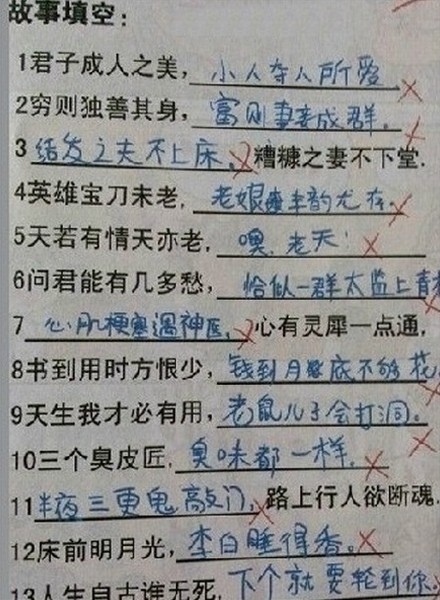 故事填空：
1君子成人之美，小人夺人所爱
2穷则独善其身，富则妻妾成群。
3结发之夫不上床，糟糠之妻不下堂.
4英雄宝刀未老，老娘丰韵尤存.
5天若有情天亦老，噢，老天！
6问君能有几多愁，恰似一群太监上青
7心肌梗塞遇神医，心有灵犀一点通，
8书到用时方恨少，钱到月底不够花
9天生我才必有用，老鼠儿子会打洞。
10三个臭皮匠，臭味都一样.
11半夜三更鬼敲门，路上行人欲断魂，
12床前明月光，李白睡得香。
13人生自古谁无死，下个就要轮到你.